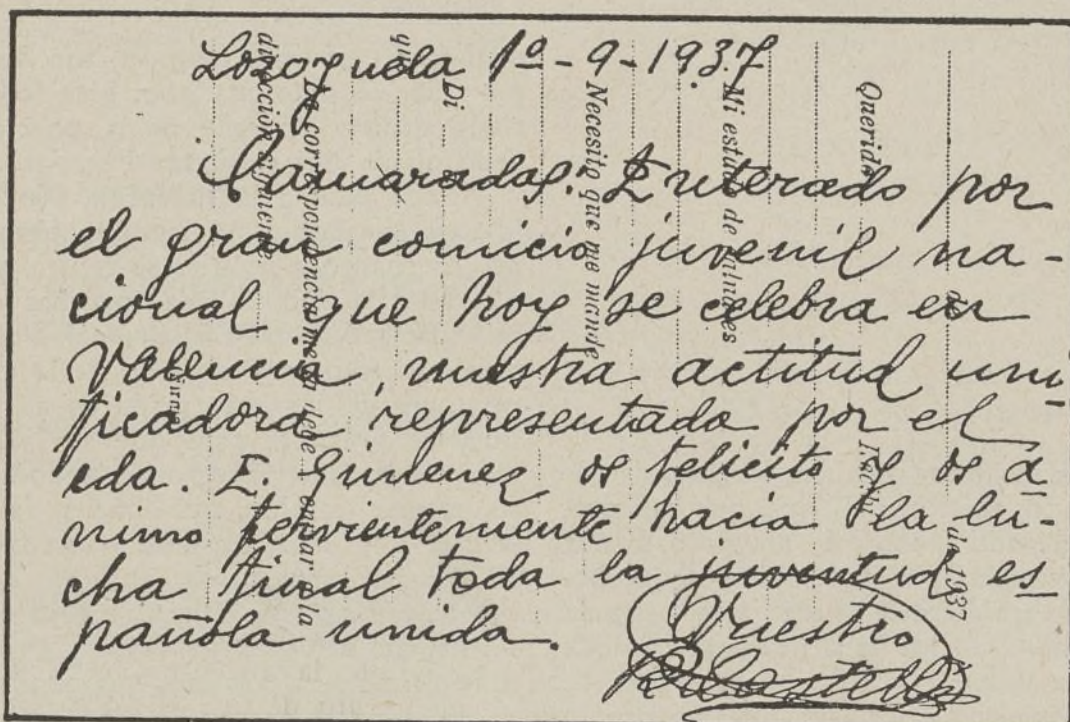 Lozoyuela 1º-9-1937
Camaradas: Enterado por
el gran comicio juvenil na-
cional que hoy se celebra en
Valencia, nuestra actitud uni
ficadora representada por el
cda. E. Gimenez os felicito y os a
nimo fervientemente hacia la lu-
cha final toda la juventud es
pañola unida.
Vuestro
R. Castelló
Querido
de
Mi estado de salud es
Necesito que me mande
Di
que
La correspondencia me la debe enviar a la
dirección siguiente:
Firma,
de 1937